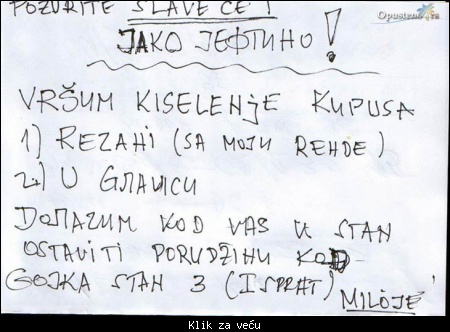 POŽURITE SLAVE ĆE!
JAKO ЈЕФТИНО!
VRŠUM KISELENJE KUPUSA
1) REZAHI (SA MOJU REHDE)
2) U GЛAVICU
DOЛAZUM KOD VAS U STAN
OSTAVITI PORUDŽIHU KOD
GOJKA STAN 3 (ISPRAT)
MILOJE
Klik za veću